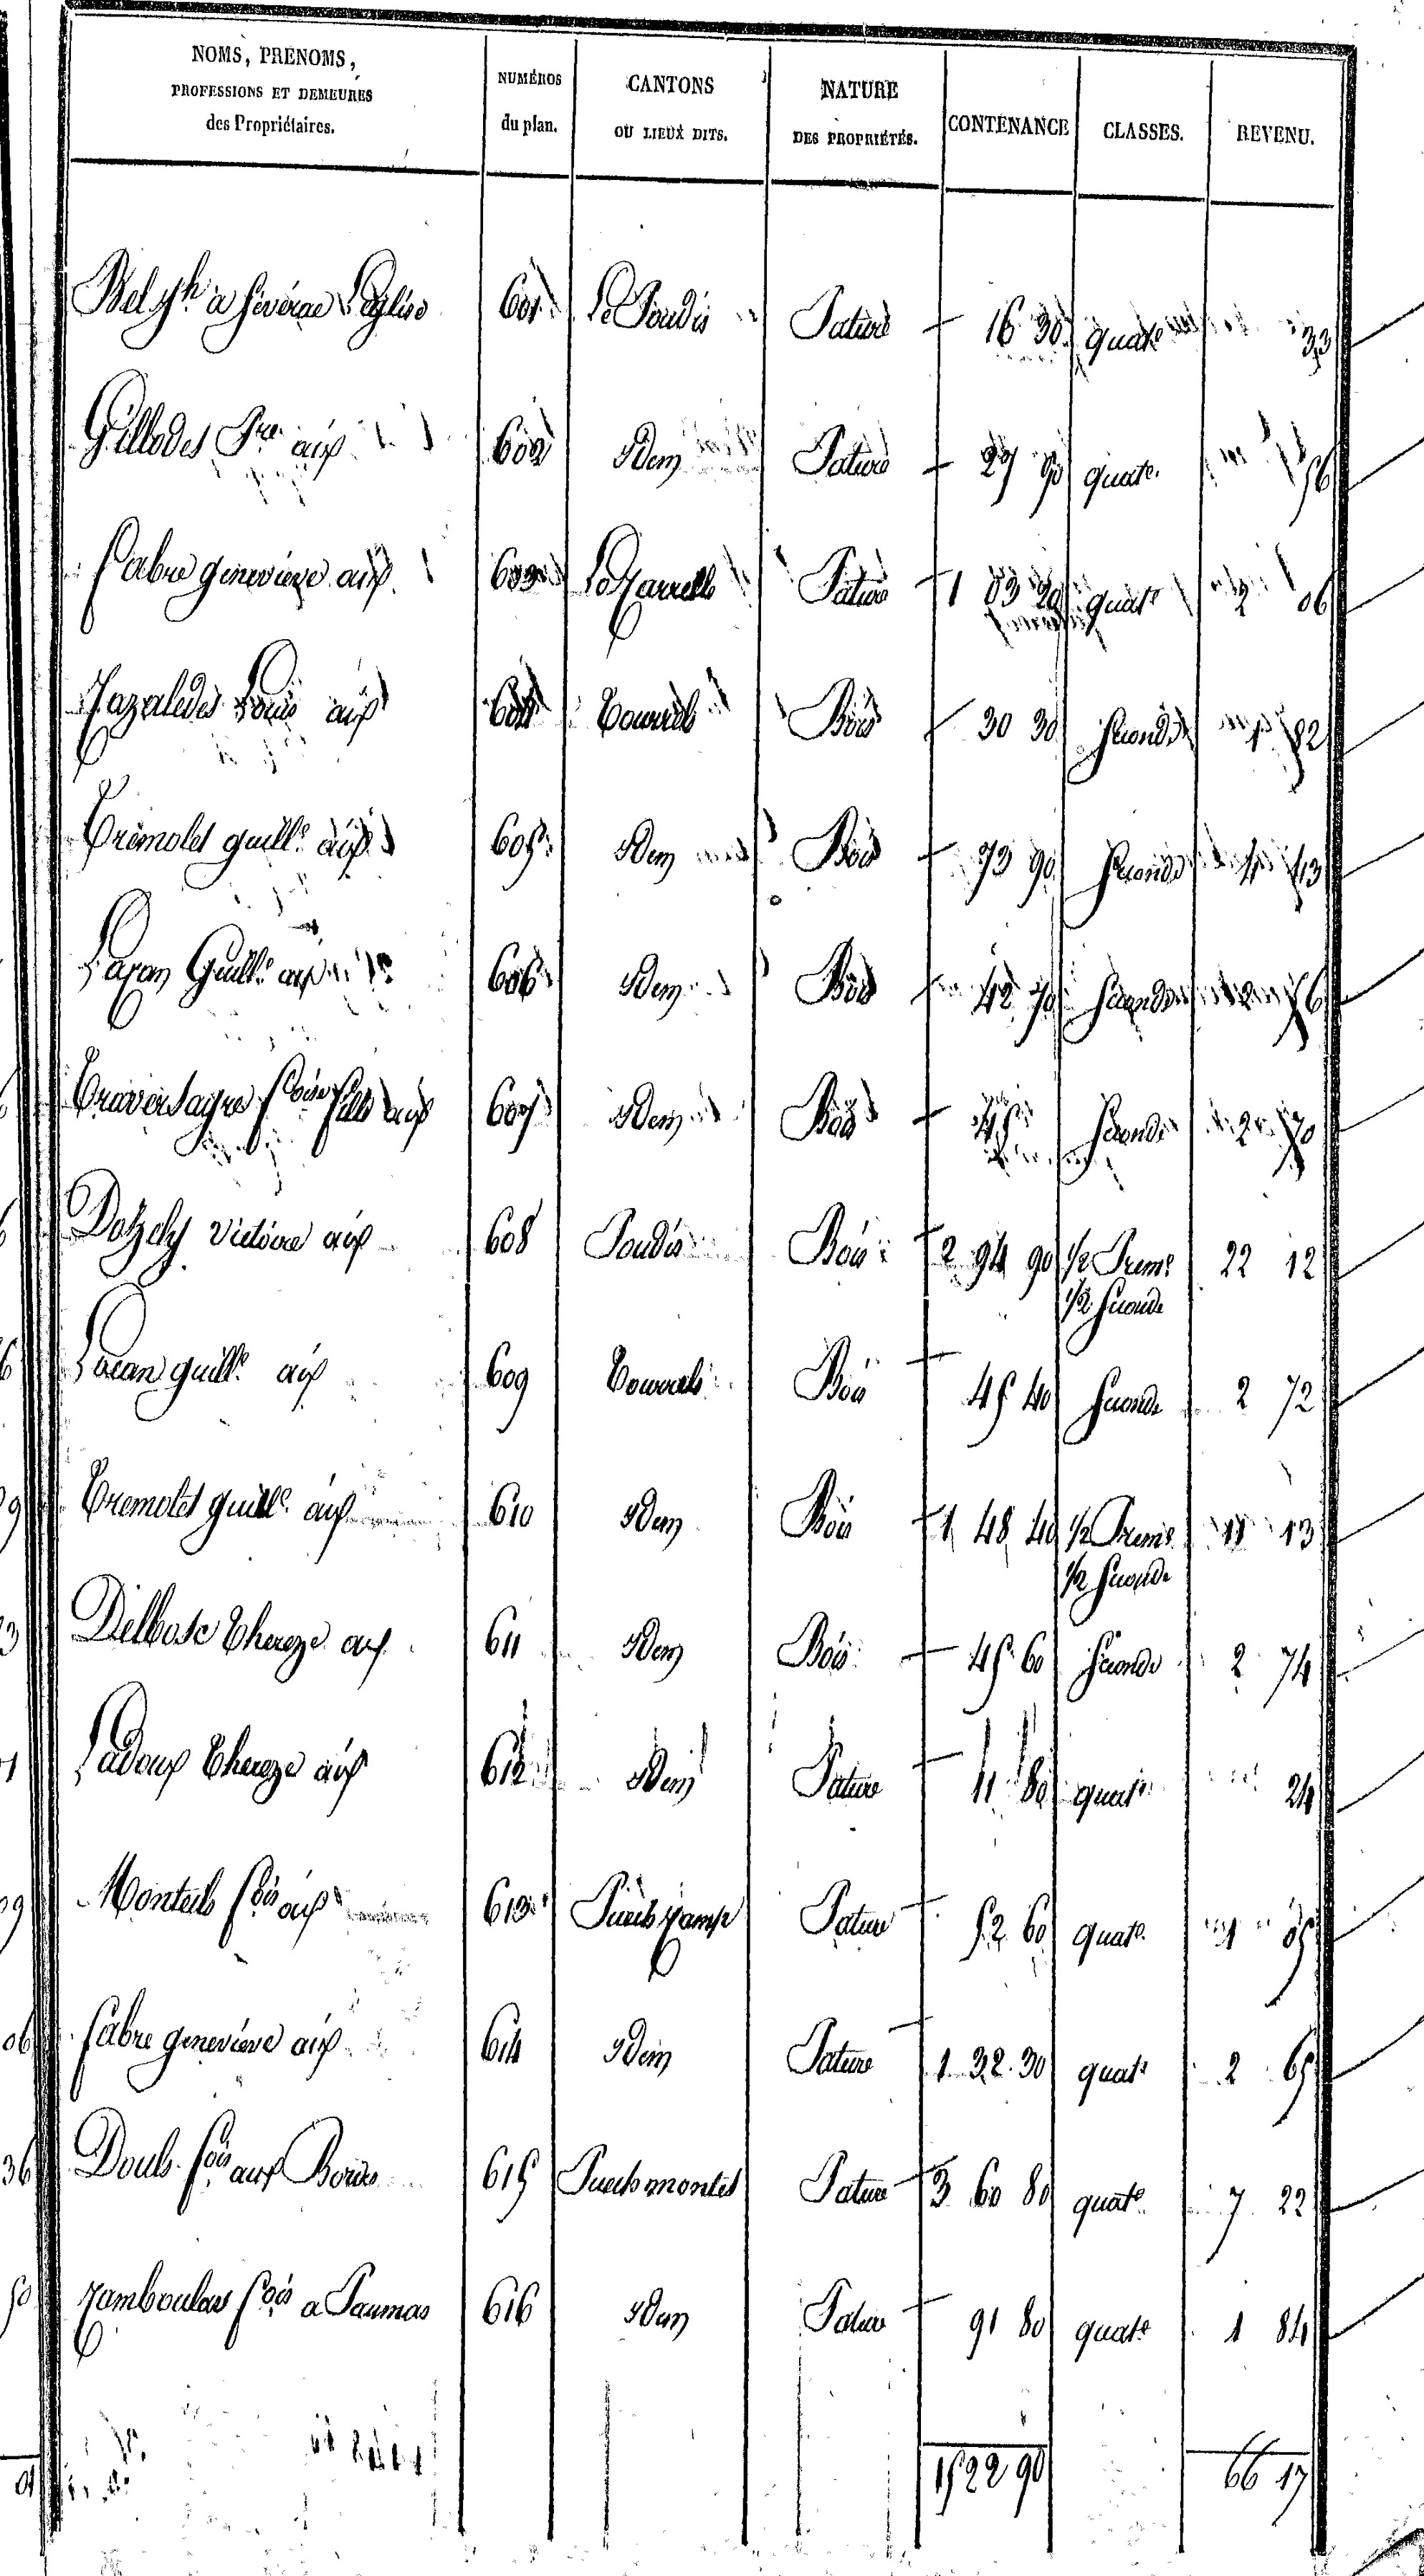 NOMS, PRENOMS, PROFESSIONS ET DEMEURES des Propriétaires. NUMÉROS du plan. CANTONS OU LIEUX DITS. NATURE DES PROPRIÉTÉS. CONTENANCE CLASSES. REVENU.
Bel à Séverac L'église 601 Le Poudis Pature 16 30 quat.e 33
Gillodes aux 602 Idem Pature 27 90 quate. 56
Fabre geneviève aux 603 Pature 1 03 20 quate 2 06
Louis aux 604 Bois 30 30 seconde 1 82
Trémolet guill.e aux 605 Idem Bois 73 90 seconde 4 43
Guill.e aux 606 Idem Bois 42 70 seconde 2 56
fille aux 607 Idem Bois 45 seconde 2 70
Victoire aux 608 Poudis Bois 2 94 90 1/2 Prem.e 22 12
1/2 seconde
guill.e aux 609 Bois 45 40 seconde 2 72
Tremolet guill.e aux 610 Idem Bois 1 48 40 1/2 Prem.e 11 13
1/2 seconde
Delbosc Thereze aux 611 Idem Bois 45 60 seconde 2 74
Ladoux Thereze aux 612 Idem Pature 11 80 quate. 24
Monteils f.ois aux 613 Puech Pature 52 60 quate. 1 05
fabre geneviève aux 614 Idem Pature 1 32 30 quate 2 65
Douls f.ois aux Bories 615 Puech montet Pature 3 60 80 quate 7 22
f.ois a Paumas 616 Idem Pature 91 80 quate 1 84
15 22 90 66 17